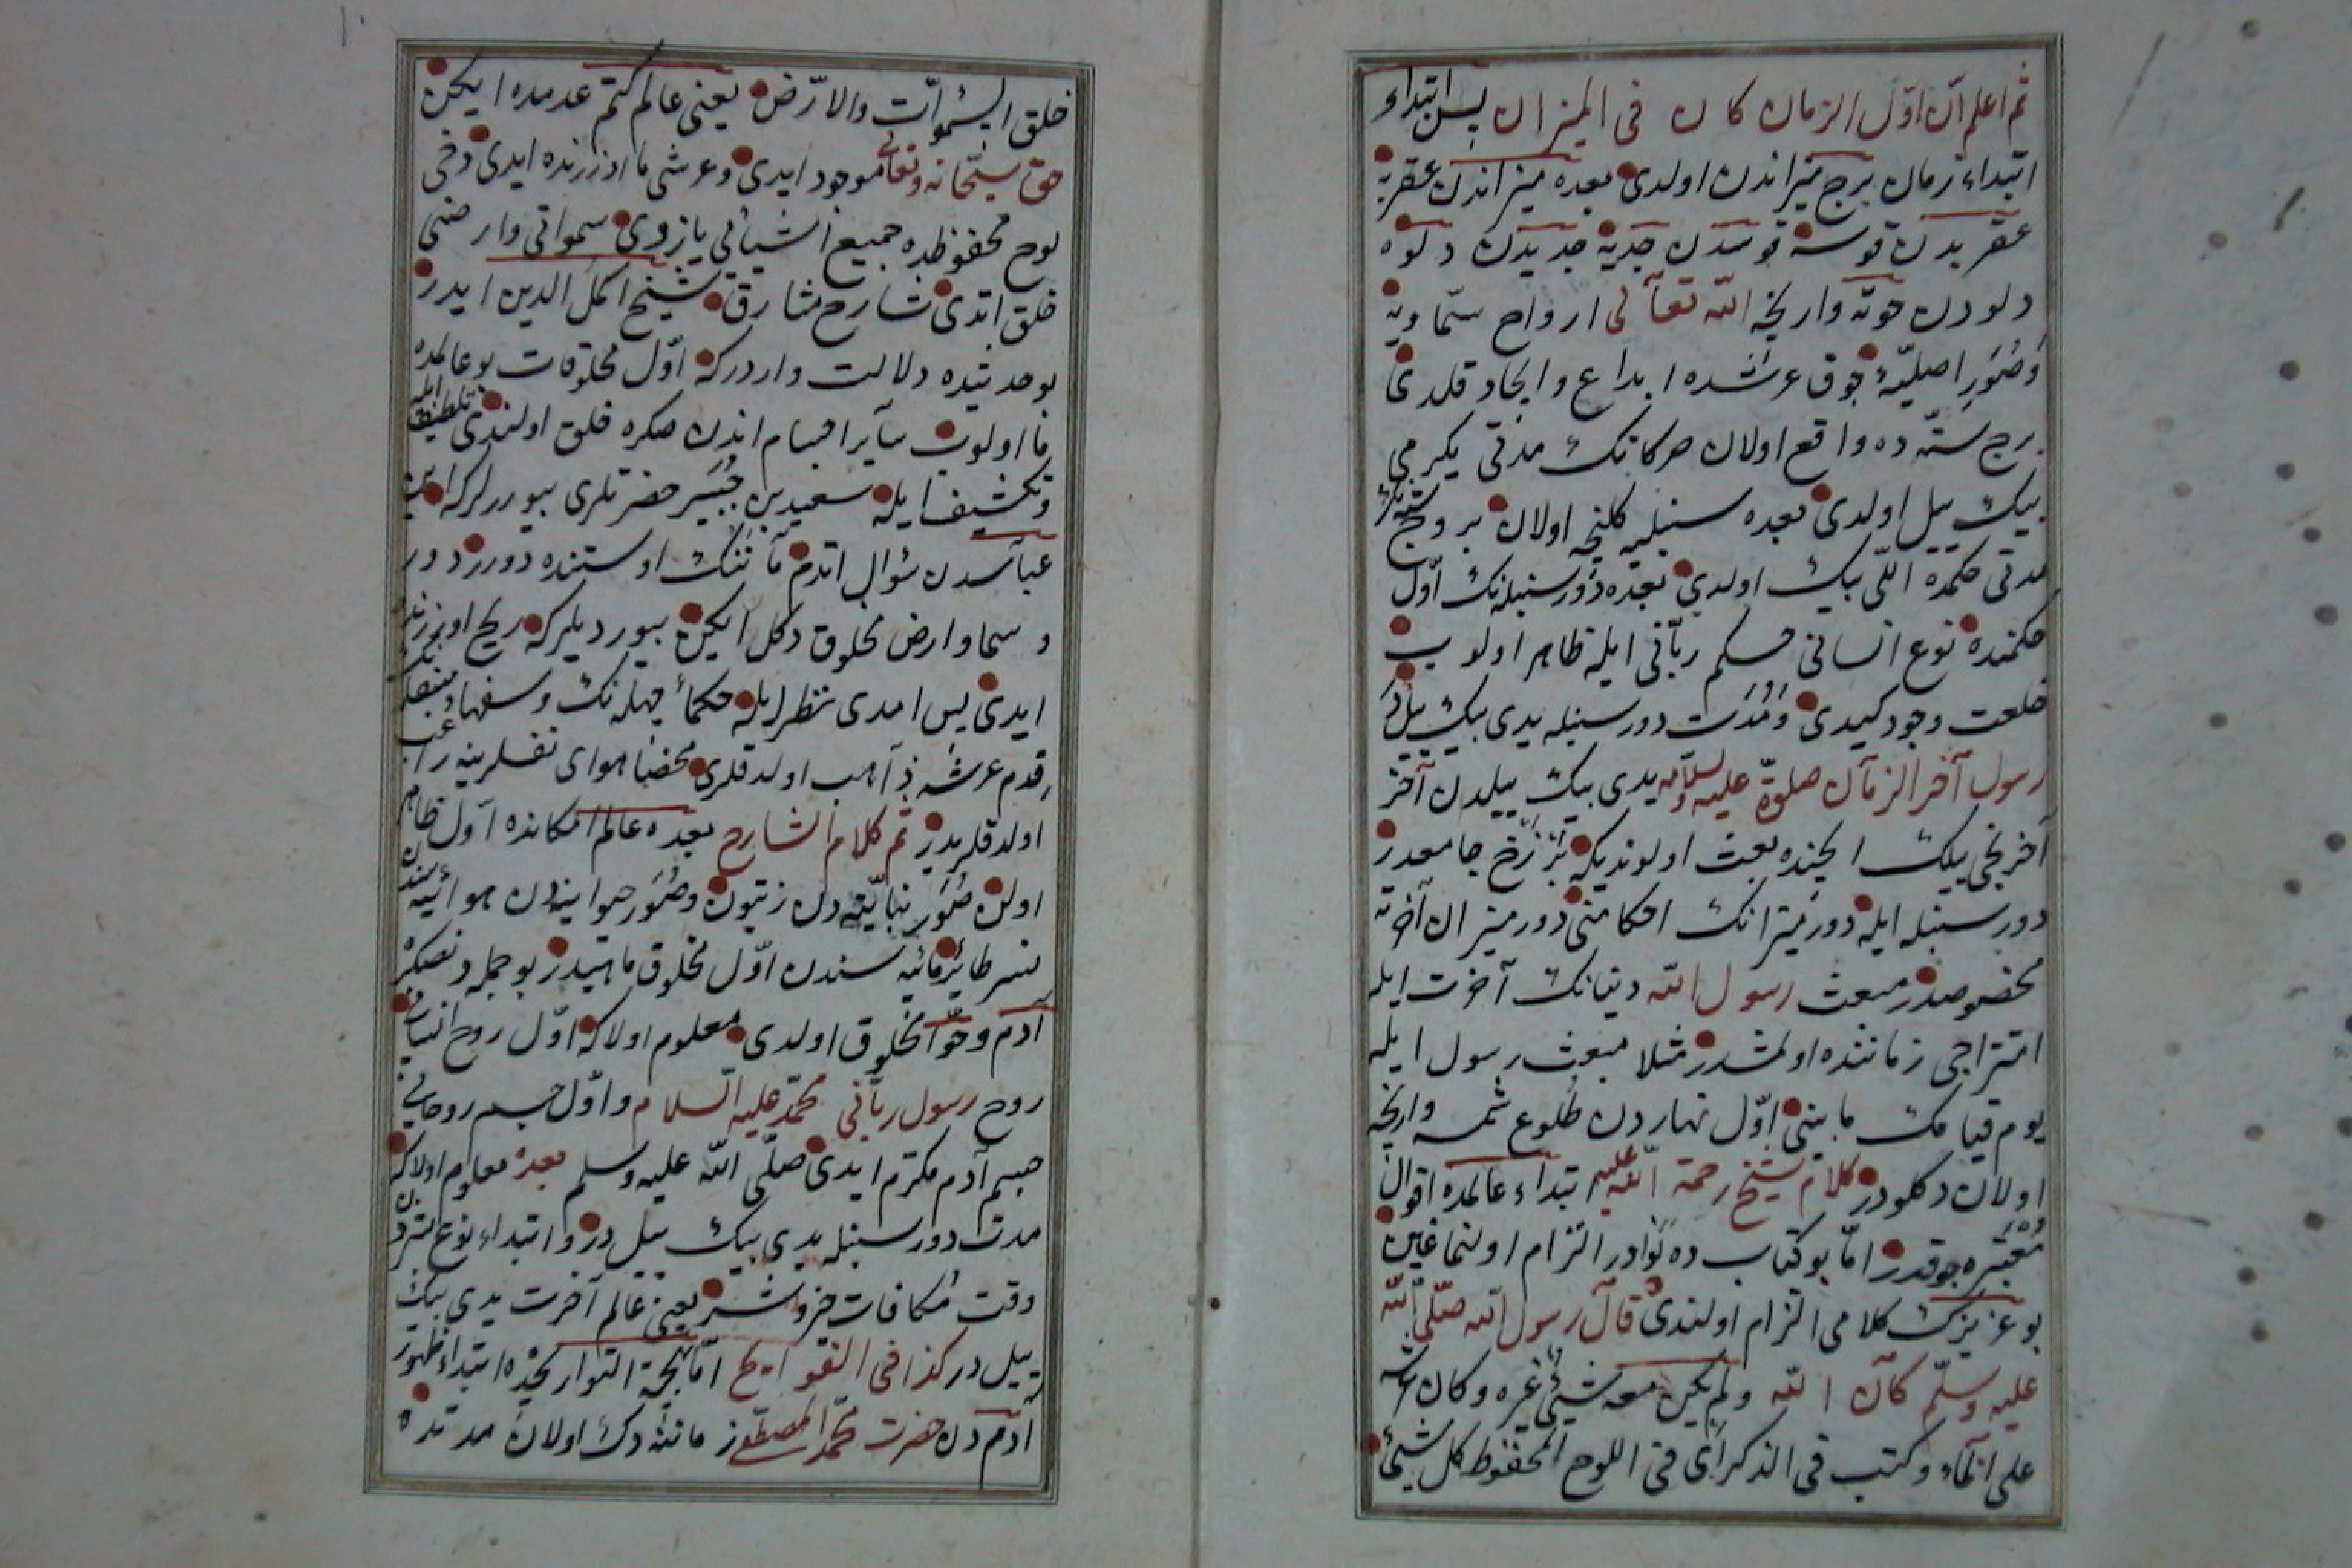 ثم اعلم ان اوّل الزمان كان فى الميزان پس ابتداء
ابتداء زمان برج ميزاندن اولدى بعده ميزاندن عقربه
عقربدن قوسه قوسدن جديه جديدن دلوه
دلودن حوته وارنجه الله تعالى ارواح سماويه
وصُوَرِ اصليّه‌ٔ فوق عرشده ابداع وايجاد قلدى
برج ستّه ده واقع اولان حركاتك مدتى يكرمى
بيك ييل اولدى بعده سنبليه كلنجه اولان بروج ستّه نك
مدتى حكمده اللى بيك اولدى بعده دور سنبله نك اوّل
حكمنده نوع انسانى حكم ربّانى ايله ظاهر اولوب
خلعت وجود كيدى ومُدّت دور سنبله يدى بيك ييلدر
رسول آخر الزمان صلوة عليه والسلام يدى بيك ييلدن آخر
آخرنجى بيك ايچنده بعث اولونديكه برزخ جامعدر
دور سنبله ايله دور ميزانك احكامنى دور ميزان آخرته
مخصوصدر مبعث رسول الله دنيانك آخرت ايله
امتزاجى زماننده اولمشدر مثلا مبعث رسول ايله
يوم قيامك مابينى اوّل نهاردن طلوع شمسه وارنجه
اولان دكلودر كلام شيخ رحمة الله عليه ابتداء عالمده اقوال
مُعتبره چوقدر امّا بو كتاب ده نوادر التزام اولنماغين
بو عزيزك كلامى التزام اولندى قال رسول الله صلّى الله
عليه وسلّم كان الله ولم يكن معه شيئ غيره وكان عرشه
على الماء وكتب فى الذكر اى فى اللوح المحفوظ كل شيئ
خلق السموات والارض يعنى عالم كتم عدمده ايكن
حق سبحانه وتعالى موجود ايدى وعرشى ما اوزرنده ايدى دخى
لوح محفوظده جميع اشيائى يازدى سمواتى وارضى
خلق ايتدى شارح مشارق شيخ اكمل الدين ايدر
بو حديثده دلالت واردركه اوّل مخلوقات بو عالمده
ما اولوب سآير اجسام اندن صكره خلق اولندى تلطيف ايله
وتكشيف ايله سعيد بن جُبَير حضرتلرى بيوررلركه ابن
عباسدن سُؤال اتدم مآ ننك اوستنده دورر در
و سما وارض مخلوق دكل ايكن بيورديلركه ريح اوزرنده
ايدى پس امدى نظر ايله حكمآ جهله نك وسفهاء
قدم عرشه ذاهب اولدقلرى محضا هواى نفسلرينه راغب
اولدقلريدر ثم كلام الشارح بعده عالم امكانده اوّل ظاهر
اولن صُوَر نباتيّه دن زيتون وصُوَر حيوانيه دن هوائيه سندن
نسر طائر مائيه سندن اوّل مخلوق ماهيدر بو جمله دنصكره
آدم وحوّا مخلوق اولدى معلوم اولاكه اوّل روح انسانى
روح رسول ربّانى محمّد عليه السلام واوّل جسم روحانى
جسم آدم مكرّم ايدى صلّى الله عليه وسلم بعده معلوم اولاكه
مدت دور سنبله يدى بيك ييل در وابتداء نوع بشردن
وقت مُكافات خير وشر يعنى عالم آخرت يدى بيك
ييل در كذا فى التقواريخ امّا بهجة التواريخده ابتداء ظهور
آدم دن حضرت محمّد المصطفى زماننه دك اولان مدتده